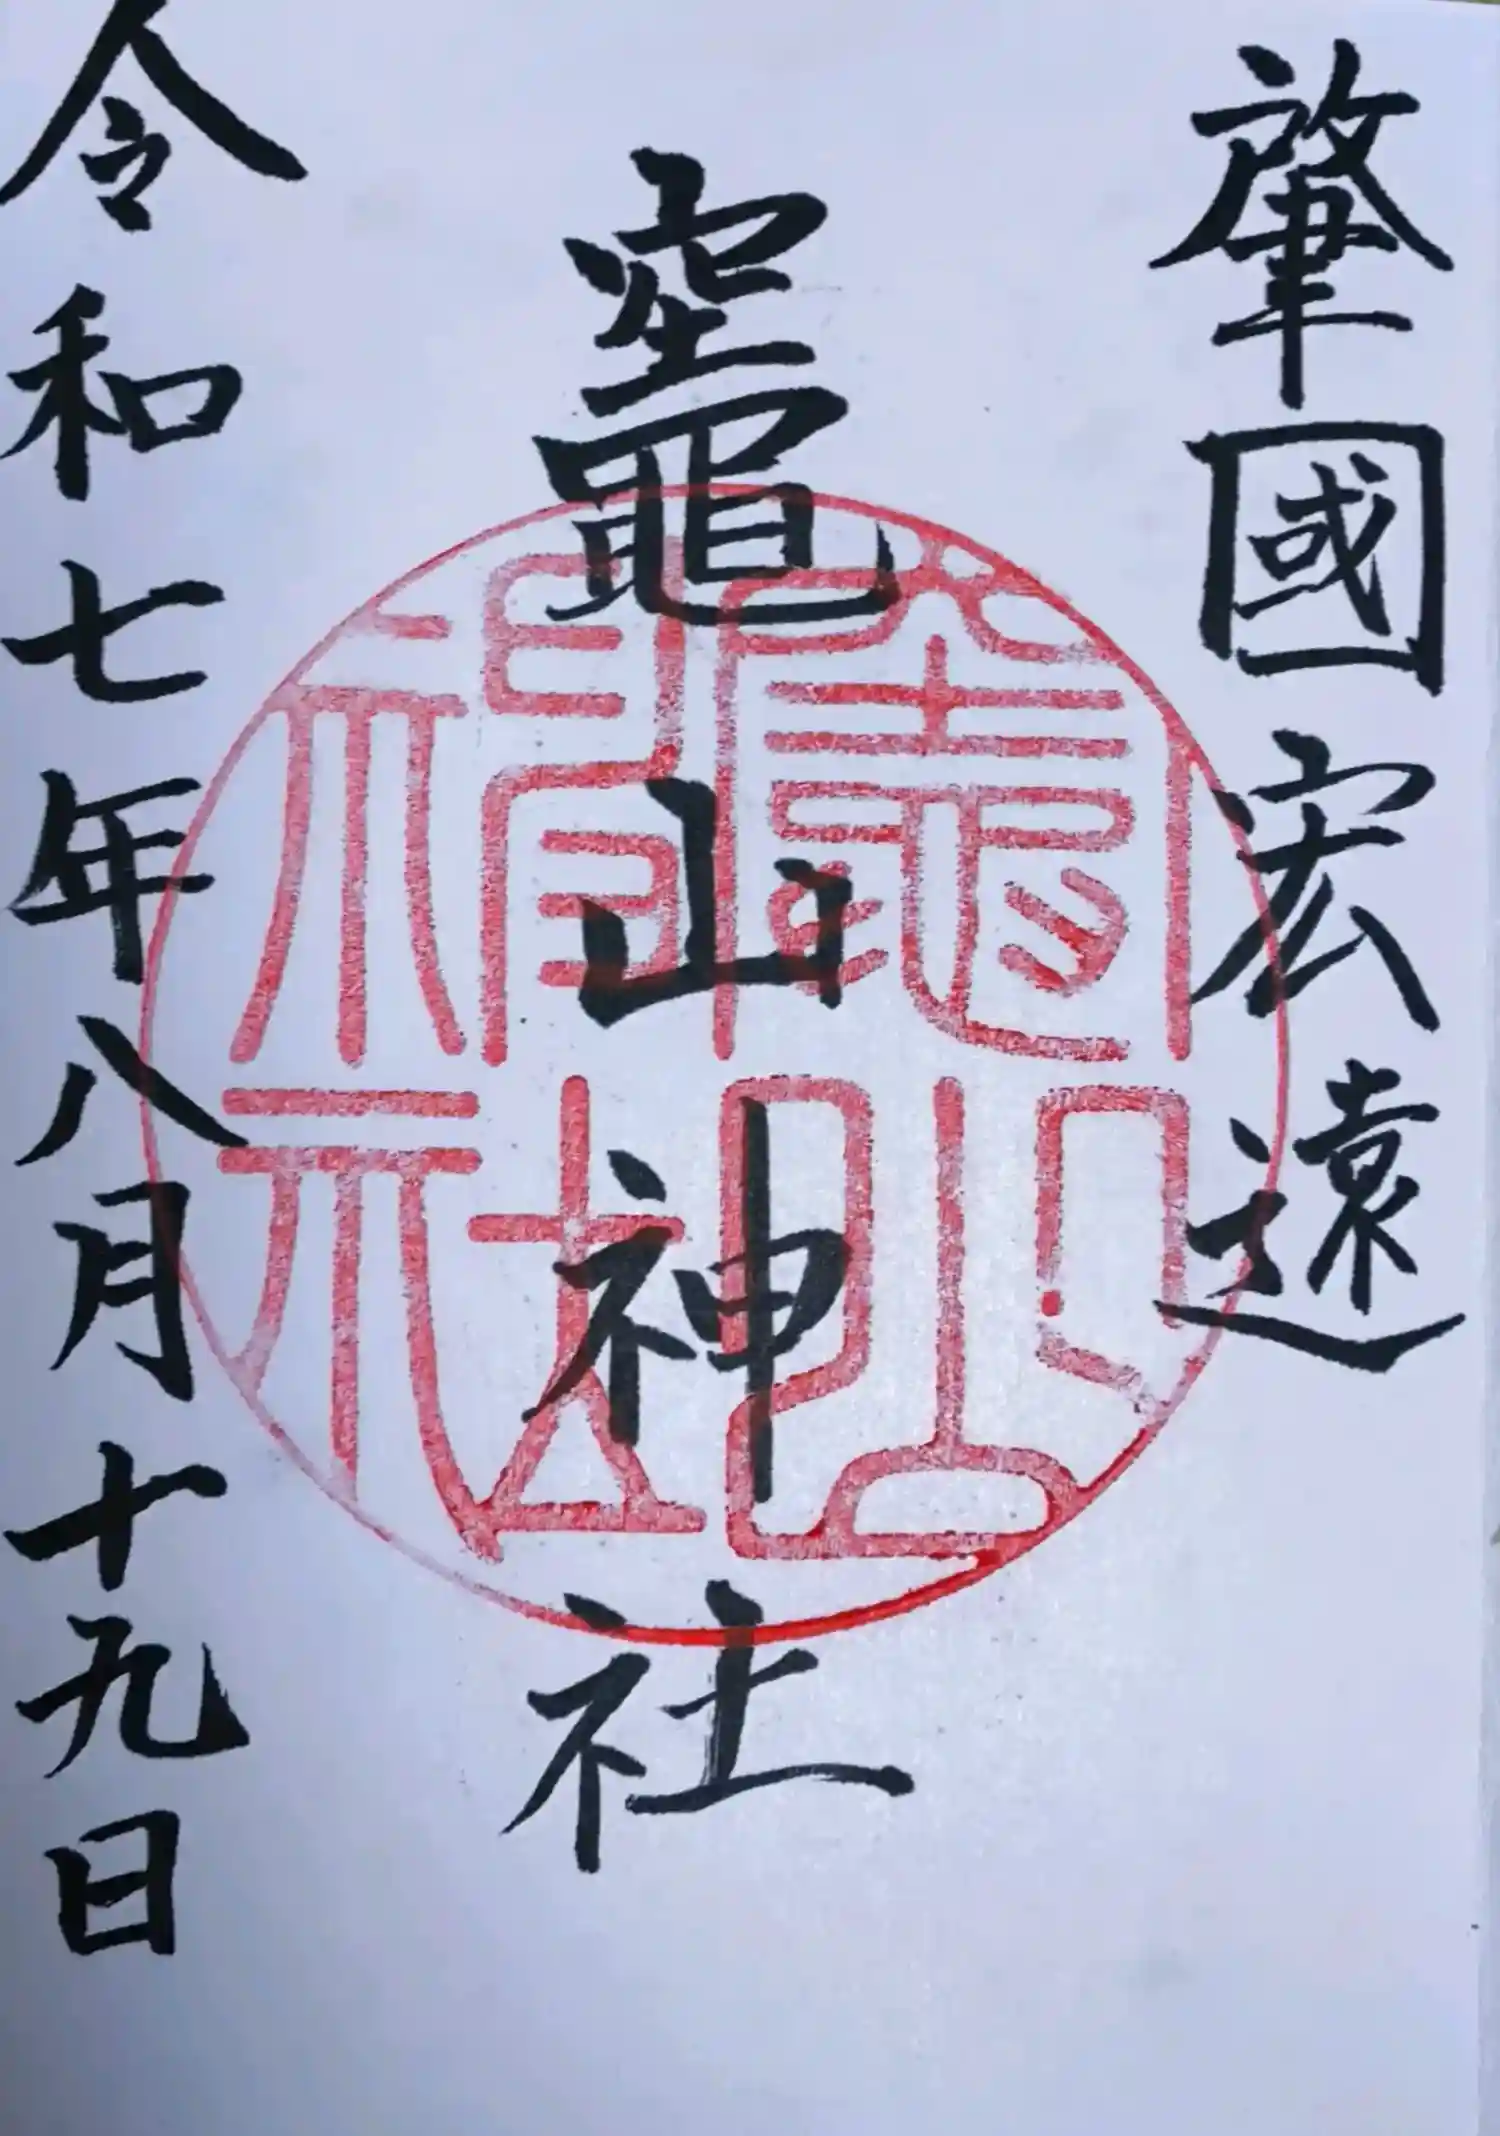 肇國宏遠
竈山神社
令和七年八月十九日
竈山神社